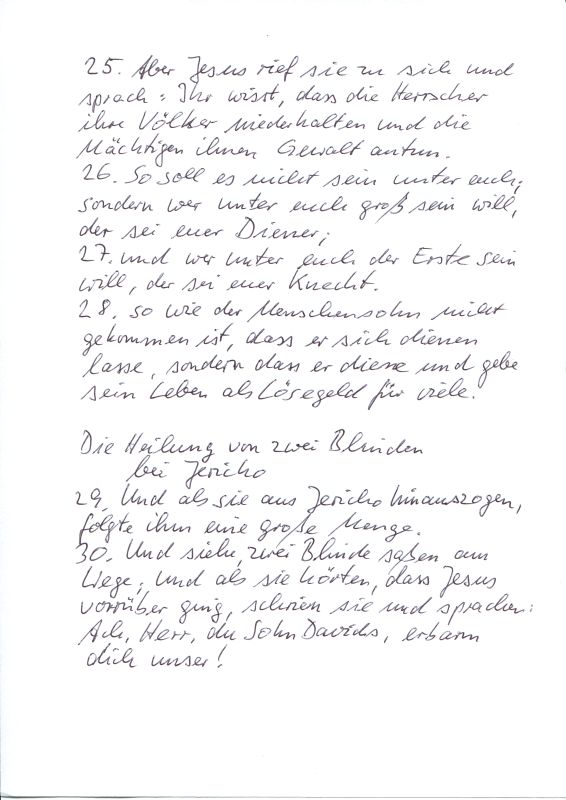 25. Aber Jesus rief sie zu sich und
sprach: Ihr wisst, dass die Herrscher
ihre Völker niederhalten und die
Mächtigen ihnen Gewalt antun.
26. So soll es nicht sein unter euch;
sondern wer unter euch groß sein will,
der sei euer Diener;
27. und wer unter euch der Erste sein
will, der sei euer Knecht.
28. so wie der Menschensohn nicht
gekommen ist, dass er sich dienen
lasse, sondern dass er diene und gebe
sein Leben als Lösegeld für viele.
Die Heilung von zwei Blinden
bei Jericho
29. Und als sie aus Jericho hinauszogen,
folgte ihm eine große Menge.
30. Und siehe, zwei Blinde saßen am
Wege; und als sie hörten, dass Jesus
vorrüber ging, schrien sie und sprachen:
Ach, Herr, du Sohn Davids, erbarm
dich unser!